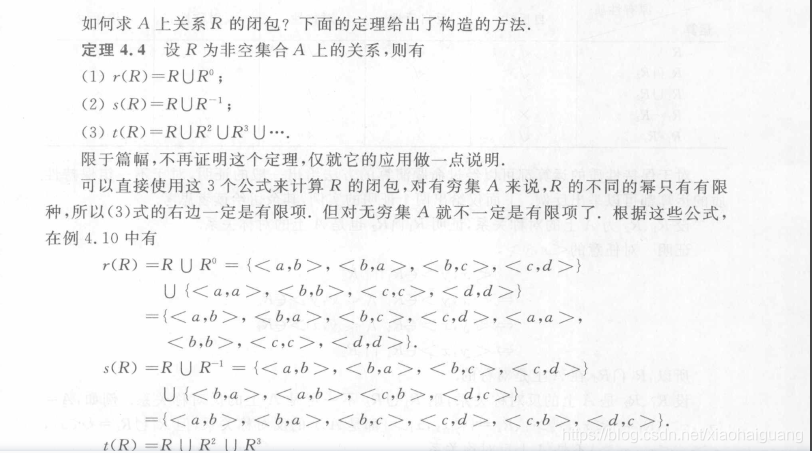 如何求 A 上关系 R 的闭包？下面的定理给出了构造的方法.
定理 4.4 设 R 为非空集合 A 上的关系,则有
(1) r(R)=R∪R⁰;
(2) s(R)=R∪R⁻¹;
(3) t(R)=R∪R²∪R³∪⋯.
限于篇幅,不再证明这个定理,仅就它的应用做一点说明.
可以直接使用这 3 个公式来计算 R 的闭包,对有穷集 A 来说,R 的不同的幂只有有限
种,所以(3)式的右边一定是有限项. 但对无穷集 A 就不一定是有限项了. 根据这些公式,
在例 4.10 中有
r(R) =R ∪ R⁰ = {<a,b>, <b,a>, <b,c>, <c,d>}
∪ {<a,a>, <b,b>, <c,c>, <d,d>}
={<a,b>, <b,a>, <b,c>, <c,d>, <a,a>,
<b,b>, <c,c>, <d,d>}.
s(R) =R ∪ R⁻¹ = {<a,b>, <b,a>, <b,c>, <c,d>}
∪ {<b,a>, <a,b>, <c,b>, <d,c>}
={<a,b>, <b,a>, <b,c>, <c,d>, <c,b>, <d,c>}.
t(R) =R ∪ R² ∪ R³
https://blog.csdn.net/xiaohaiguang